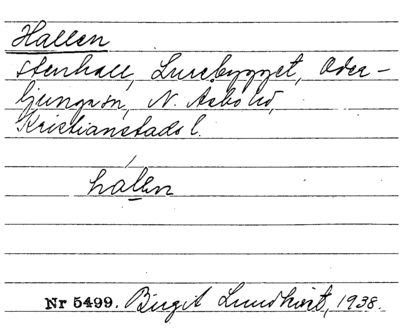 Hallen
stenhall, Lurebygget, Oder-
ljunga sn, N. Åsbo hd,
Kristianstads l.
hálen
Nr 5499. Birgit Lundkvist, 1938.